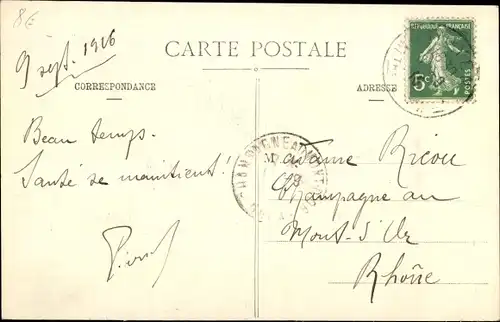 8€
9 sept. 1916
CARTE POSTALE
CORRESPONDANCE
ADRESSE
RÉPUBLIQUE FRANÇAISE
5c
POSTES
Beau temps.
Santé se maintient!
Madame Ricou
Champagne au
Mont-d'Or
Rhône